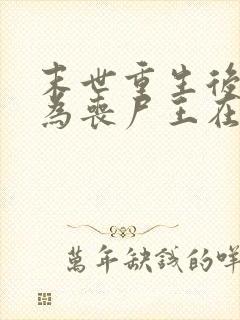 末世重生後
為喪尸王在
萬年缺錢的咩